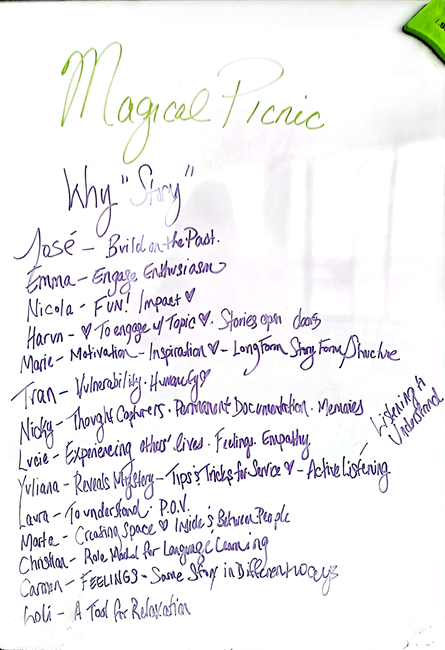 Magical Picnic
Why "Story"
José – Build on the Past.
Emma – Engage, Enthusiasm
Nicola – FUN! Impact ♡
Harun – ♡ To engage w/ Topic ♡. Stories open doors
Marie – Motivation – Inspiration ♡ – Long Form Story Form/Structure
Tran – Vulnerability · Humanity ♡
Nicky – Thought Captures · Permanent Documentation · Memories
Lucie – Experiencing others' lives · Feelings · Empathy
Yuliana – Reveals Mystery – Tips & Tricks for Service ♡ – Active Listening.
Listening to
Understand
Laura – To understand · P.O.V.
Marta – Creating Space ♡ Inside & Between People
Christian – Role Model for Language Learning
Carmen – FEELINGS – Same Story in Different ways
Loli – A Tool for Relaxation